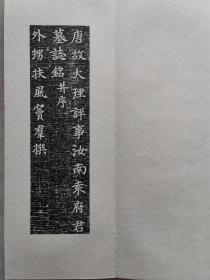 唐故大理評事汝南袁府君
墓誌銘并序
外甥扶風竇羣撰